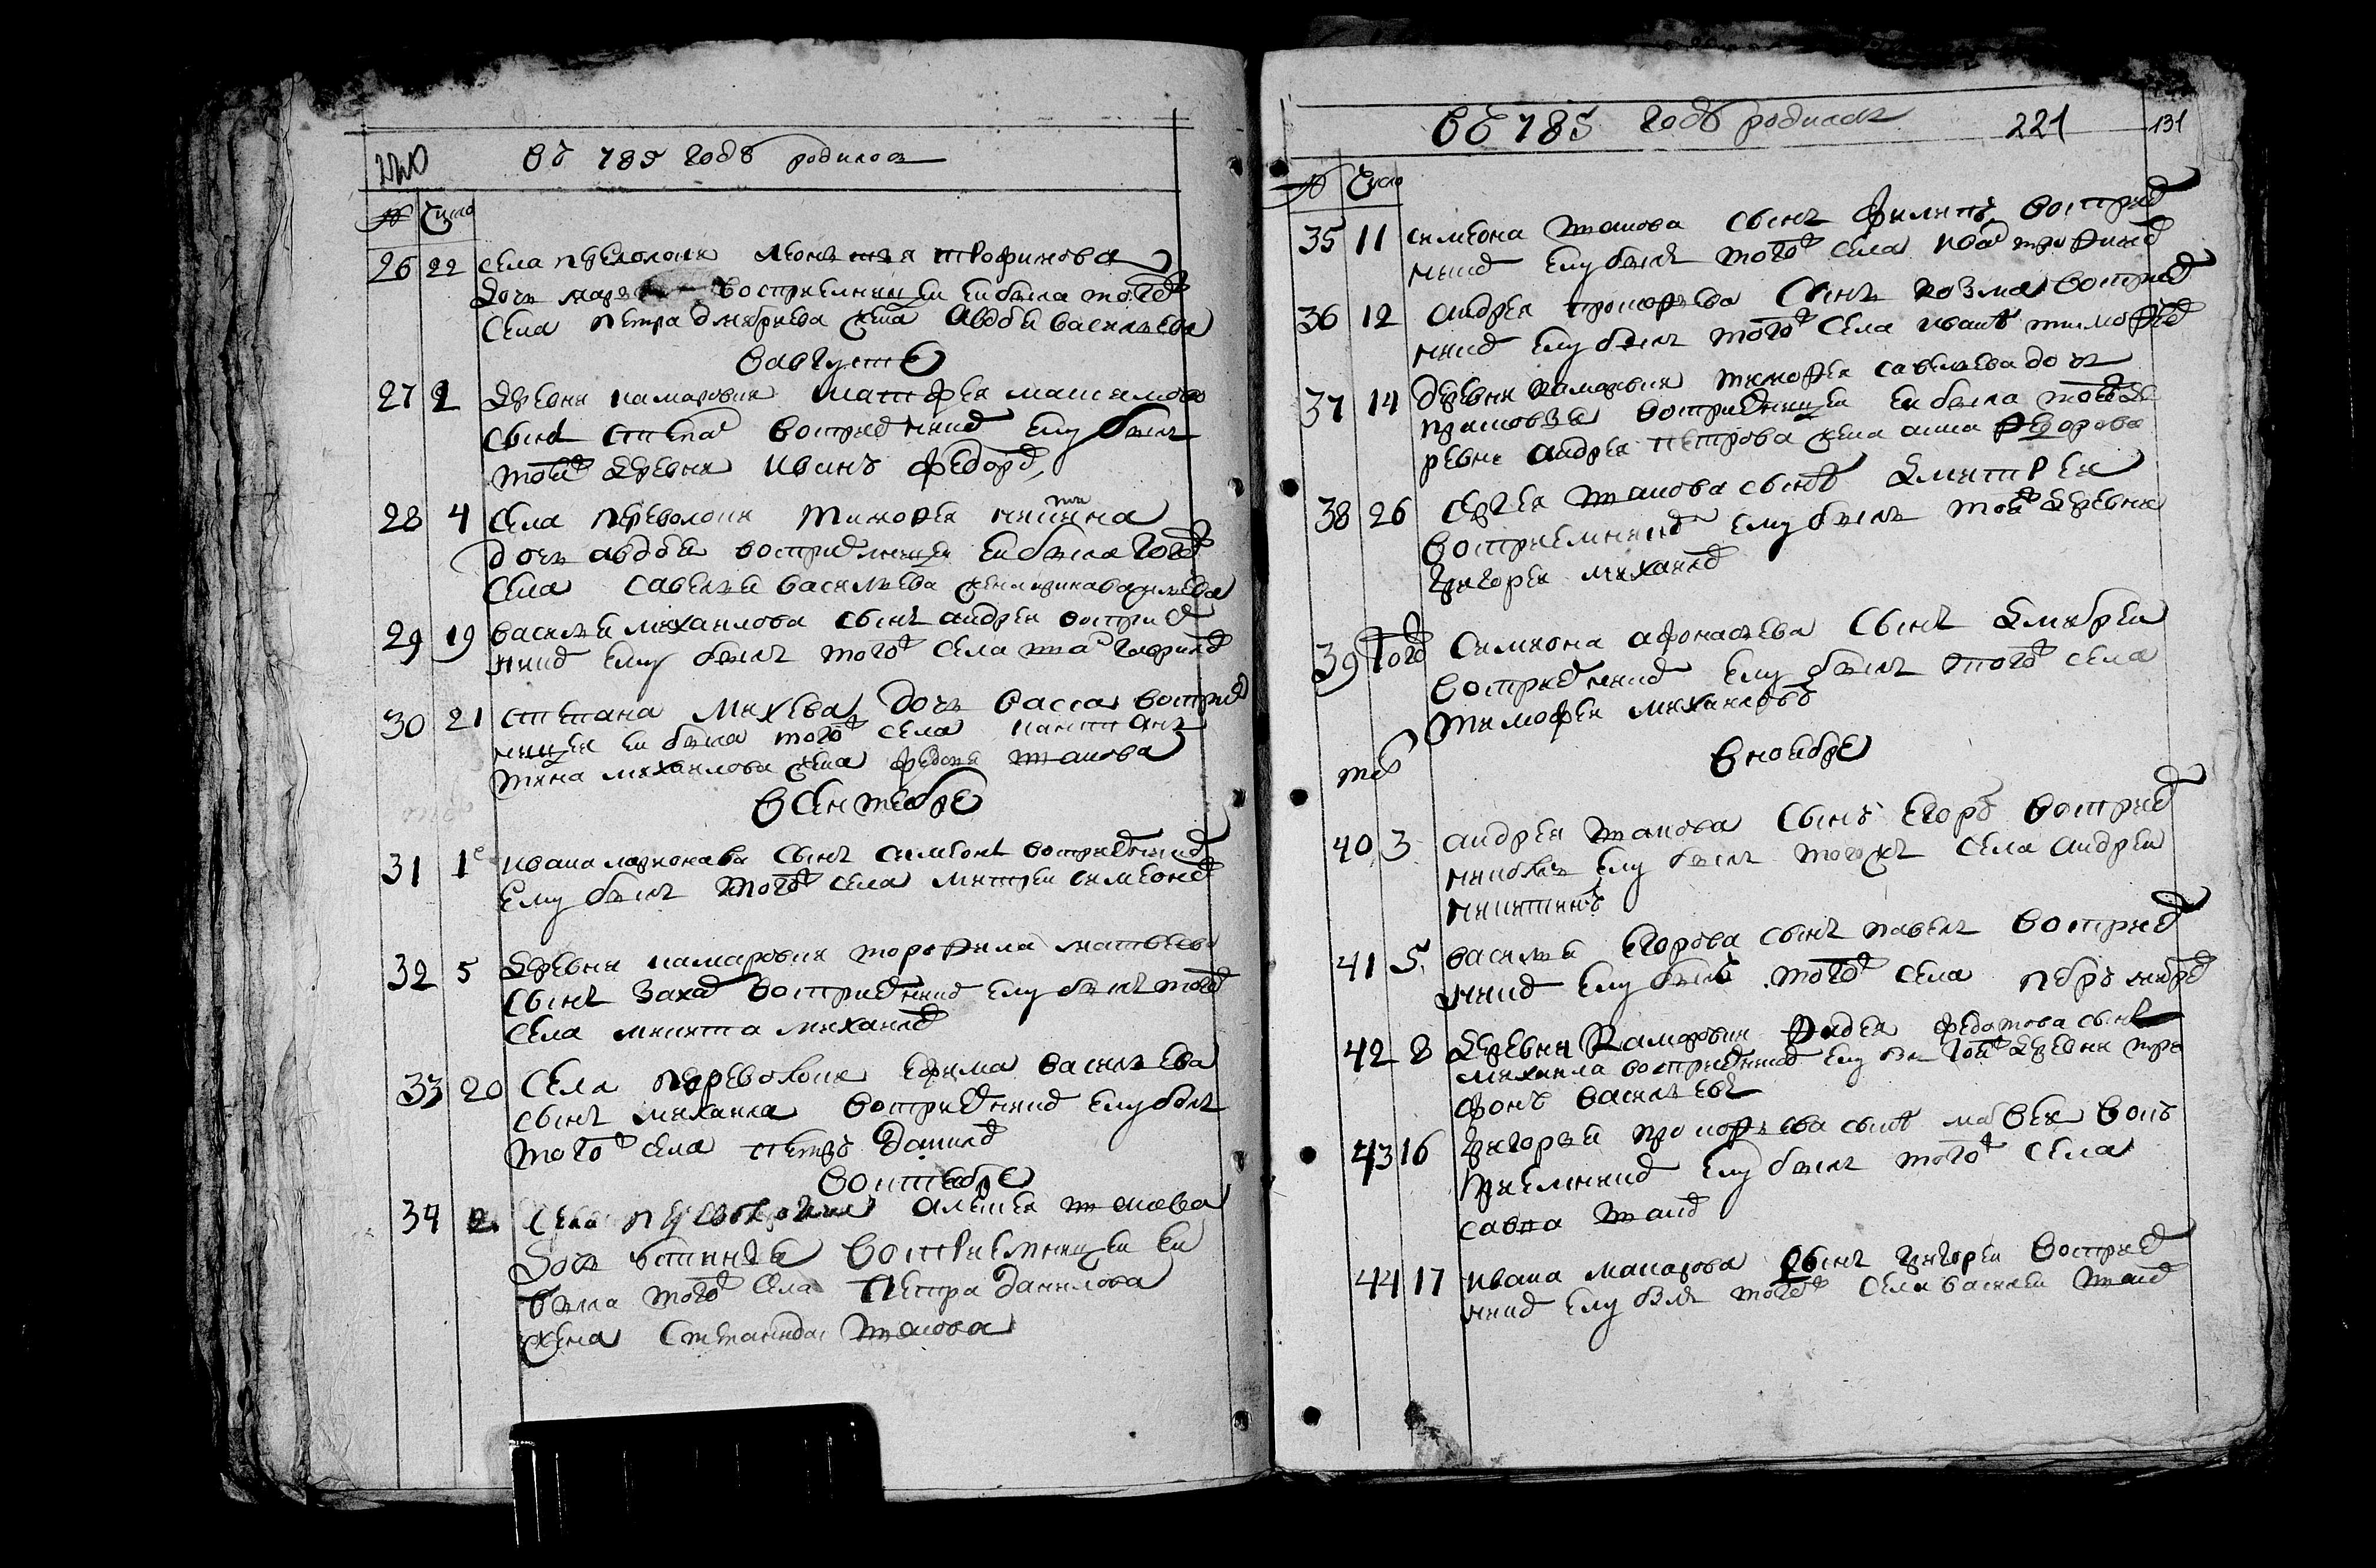 въ 785 годѣ родилос
№ Число
26 22 села переволоки леонтия трофимова
дочь восприемницеи еи была того
села петра дмитриева жена авдотья васильева
в августе
27 2 деревни камаровки матфея максимова
сынъ степа восприемник ему былъ
тои деревни иванъ федоро
28 4 села переволоки тимофея никитина
дочь авдотья восприемницеи еи была того
села савелья васильева
29 19 василья михаилова сынъ андреи восприе
мник ему былъ того села гаврило
30 21 степана михева дочь васса восприе
мницеи еи была того села констан
тина михаилова жена федосья
в сентебре
31 1 ивана ларионава сынъ симеонъ восприемник
ему былъ того села митреи симеоно
32 5 деревни камаровки торофила матвеева
сынъ заха восприемник ему былъ того
села никита михаило
33 20 села переволоки ефима васильева
сынъ михаила восприемник ему былъ
того села петръ данило
в октебре
34 2 села переволоки алексея
дочь устинья восприемницеи еи
была того села петра данилова
жена степанида
въ 785 годѣ родилось 221 131
№ Число
35 11 симеона сынъ филипъ восприе
мник ему былъ того села ива трофимо
36 12 андрея прокофьева сынъ козма восприе
мник ему былъ того села иванъ тимофее
37 14 деревни камаровки тимофея савельева дочь
прасковья восприемницеи еи была тои де
ревни андрея петрова жена анна федорова
38 26 сергея сынъ дмитреи
восприемник ему былъ тои деревни
григореи михаило
39 того симиона афонасьева сынъ дмитреи
восприемник ему былъ того села
тимофеи михаиловъ
в ноебре
40 3 андрея сынъ егоръ восприе
мникъ ему былъ того жъ села андреи
никитинъ
41 5 василья егорова сынъ павелъ восприе
мник ему былъ того села
42 8 деревни камаровки фадея федотова сынъ
михаила восприемник ему бы тои деревни тро
фонъ васильевъ
43 16 григорья прокофьева сынъ матвеи вос
приемник ему былъ того села
савва
44 17 ивана макарова сынъ григореи восприе
мник ему былъ того села василеи